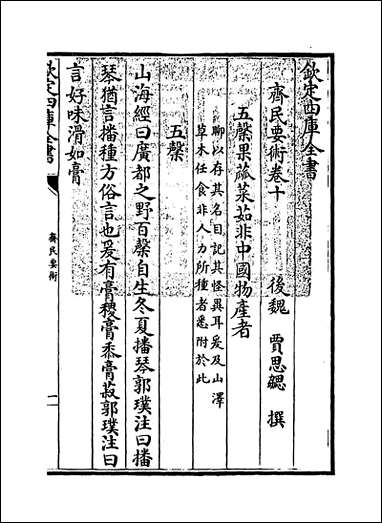 欽定四庫全書
齊民要術卷十
後魏 賈思勰 撰
五糓果蓏菜茹非中國物産者
聊以存其名目記其怪異耳爰及山澤
草木任食非人力所種者悉附於此
五糓
山海經曰廣都之野百糓自生冬夏播琴郭璞注曰播
琴猶言播種方俗言也爰有膏稷膏黍膏菽郭璞注曰
言好味滑如膏
欽定四庫全書
齊民要術
一